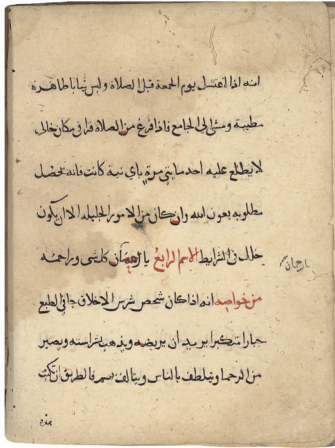 انه اذا اغتسل يوم الجمعة قبل الصلاة ولبس ثيابا طاهرة
مطيبة ومشى الى الجامع فاذا فرغ من الصلاة قرا فى مكان خال
لا يطلع عليه احد مايتى مرة باي نية كانت فانه يحصل
مطلوبه بعون الله وان كان من الامور الجليله الا ان يكون
خلل فى الشرايط الاسم الرابع يا رحمان كل شى وراحمه
يا رحمان
من خواصه انه اذا كان شخص شرس الاخلاق جافى الطبع
جبارا متكبرا يريد ان يريضه ويذهب شراسته ويصير
من الرحما ويتلطف بالناس ويتالف بهم فالطريق ان يكتب